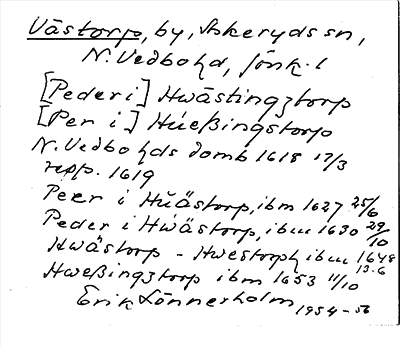 Västorp, by, Askeryds sn,
N. Vedbo hd, Jönk. l
[Peder i] Hwästingztorp
[Per i] Húeßingstorp
N. Vedbo hds domb 1618 17/3
resp. 1619
Peer i Hüästorp, ibm 1627 25/6
Peder i Hwästorp, ibm 1630 29/10
Hwästorp - Hwestorph ibm 1648 13.6
Hweßingztorp ibm 1653 11/10
Erik Lönnerholm 1954-56